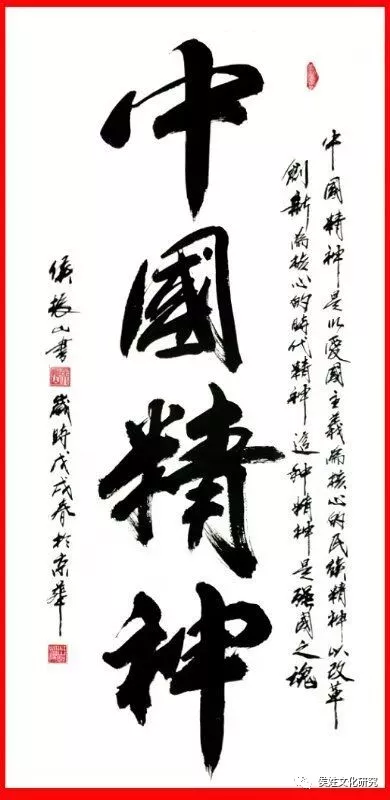 中國精神是以愛國主義為核心的民族精神以改革
創新為核心的時代精神這种精神是强國之魂
中國精神
侯振山書 歲時戊戌春於京華
侯姓文化研究